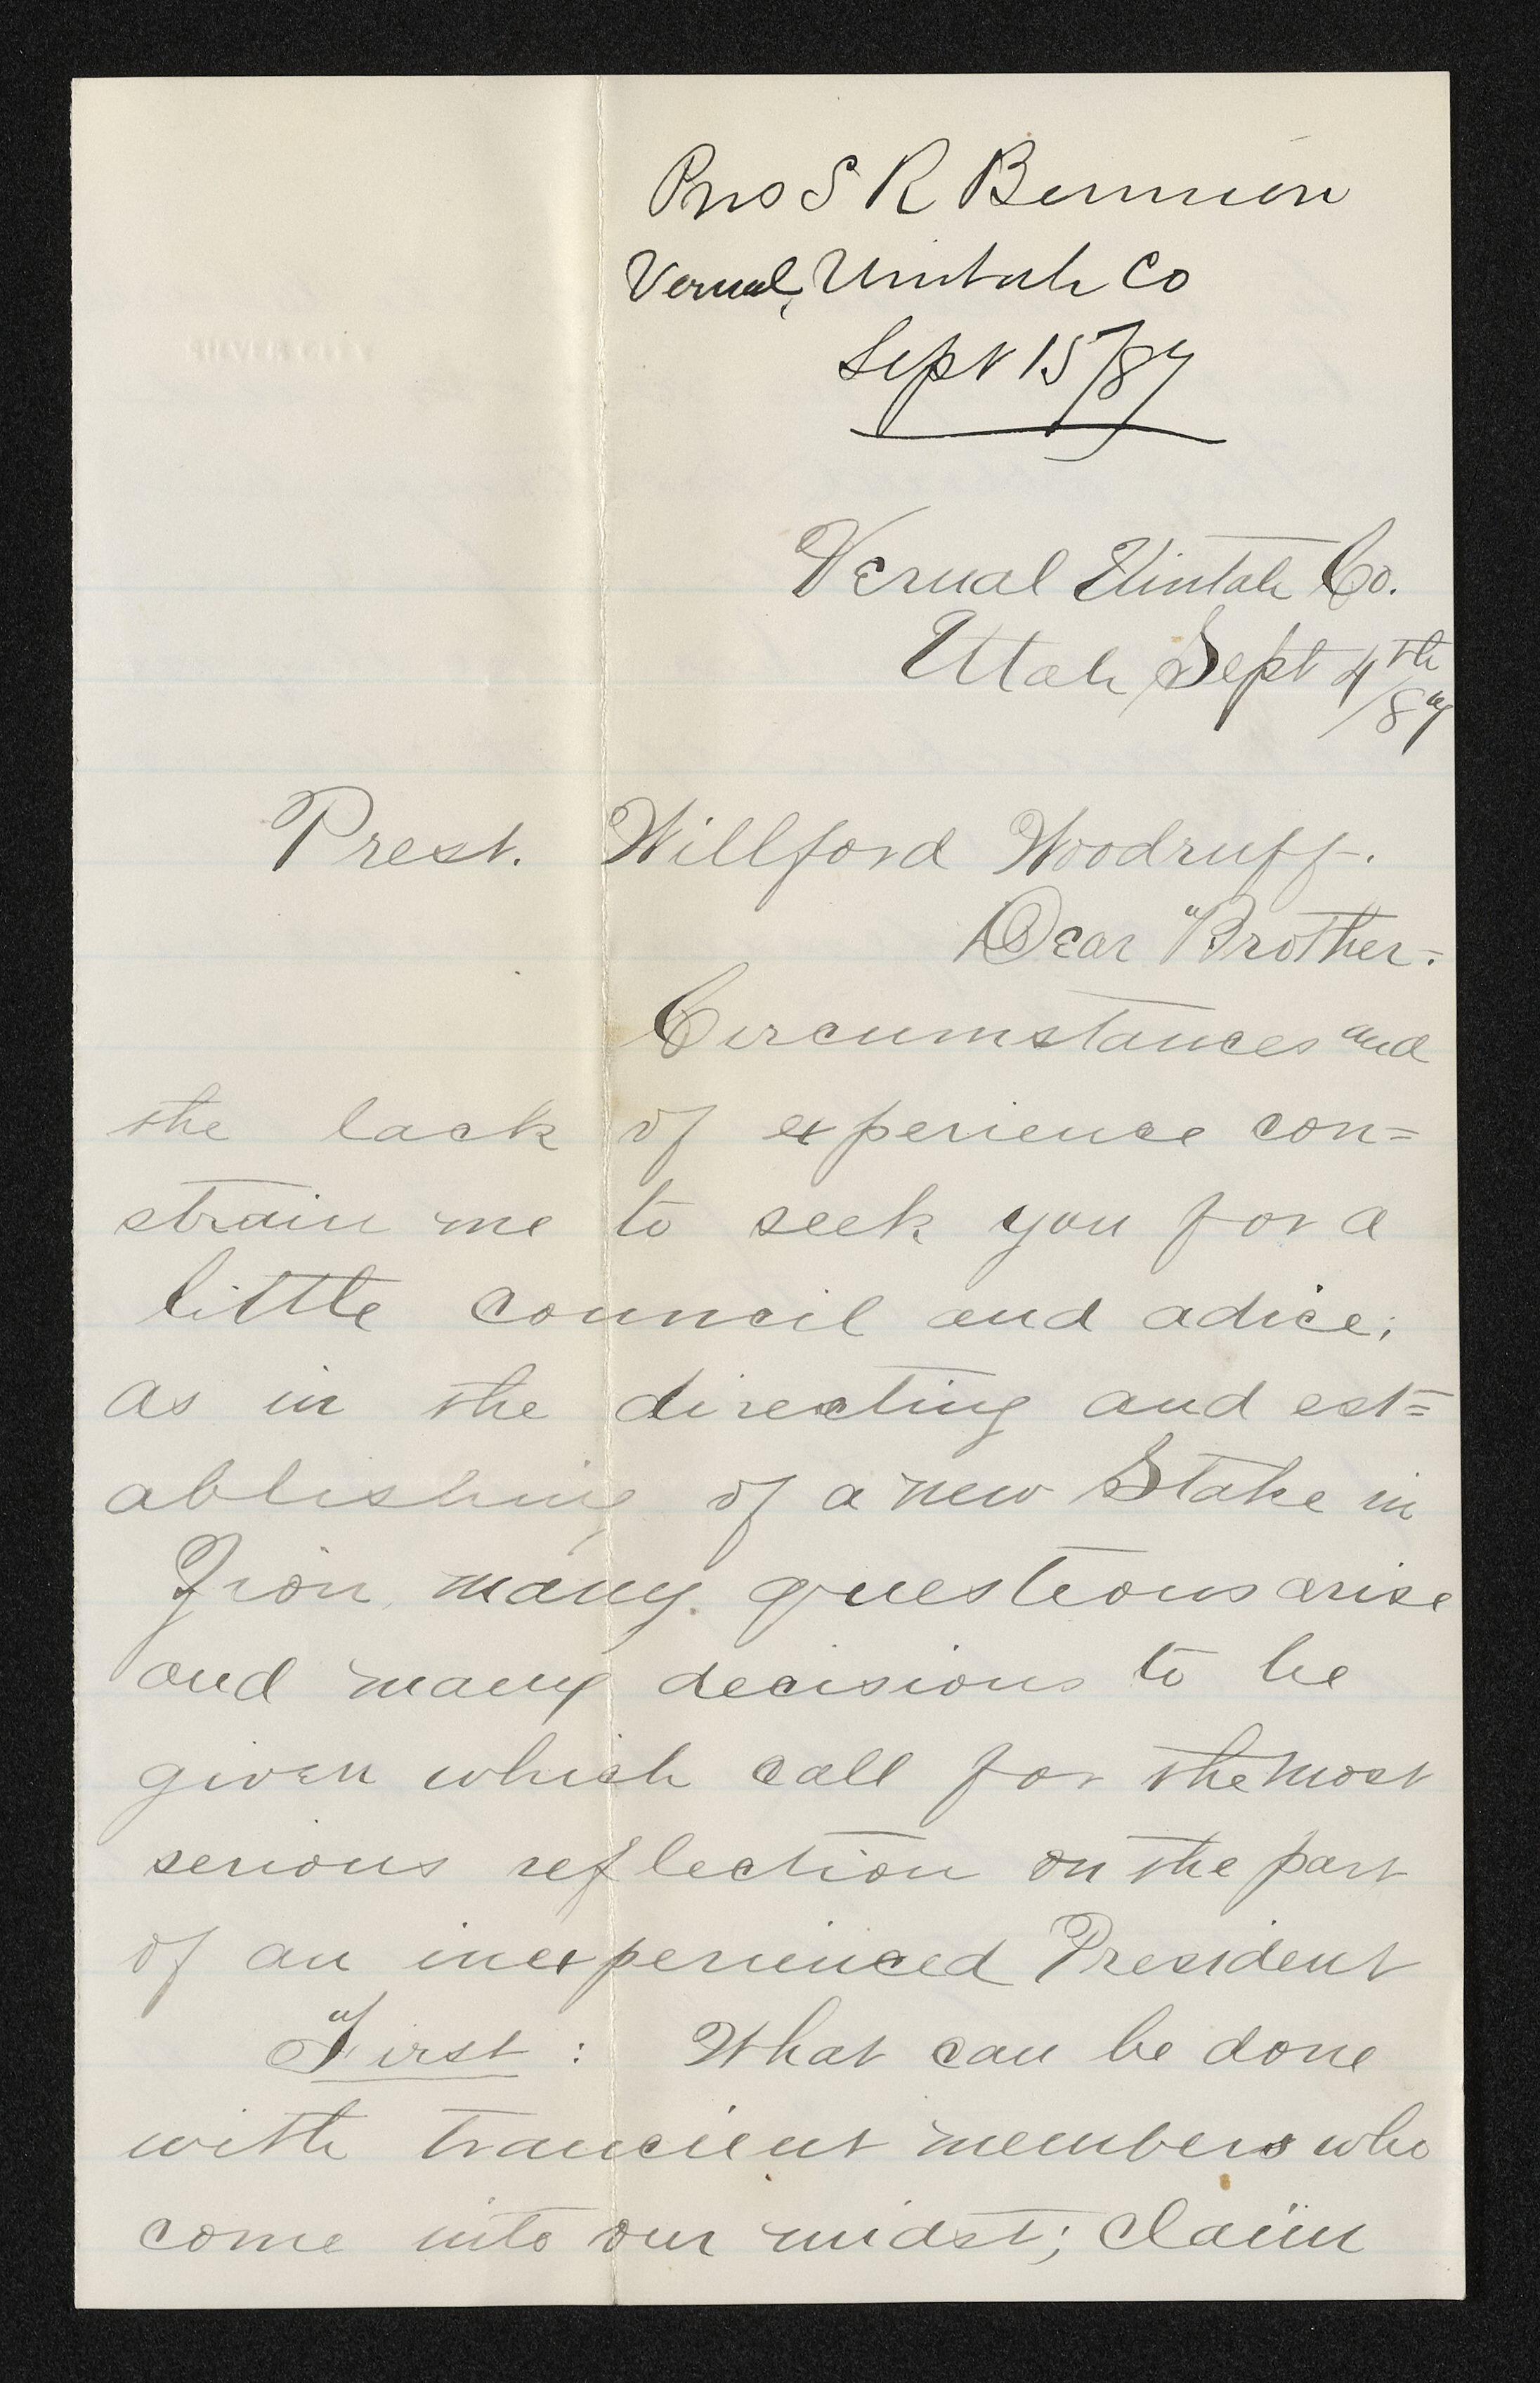 Pres S R Bennion
Vernal, Uintah Co
Sept 15/87
SILVER CITY
Vernal Uintah Co.
Utah, Sept 4th
/87
Prest. Willford Woodruff.
Dear Brother:
Circumstances and
the lack of experience con=
strain me to seek you for a
little council and adice;
as in the directing and est=
ablishing of a new Stake in
Zion, many questions arise
and many decisions to be
given which call for the most
serious reflection on the part
of an inexperienced President
First: What can be done
with trancient members who
come into our midst; claim